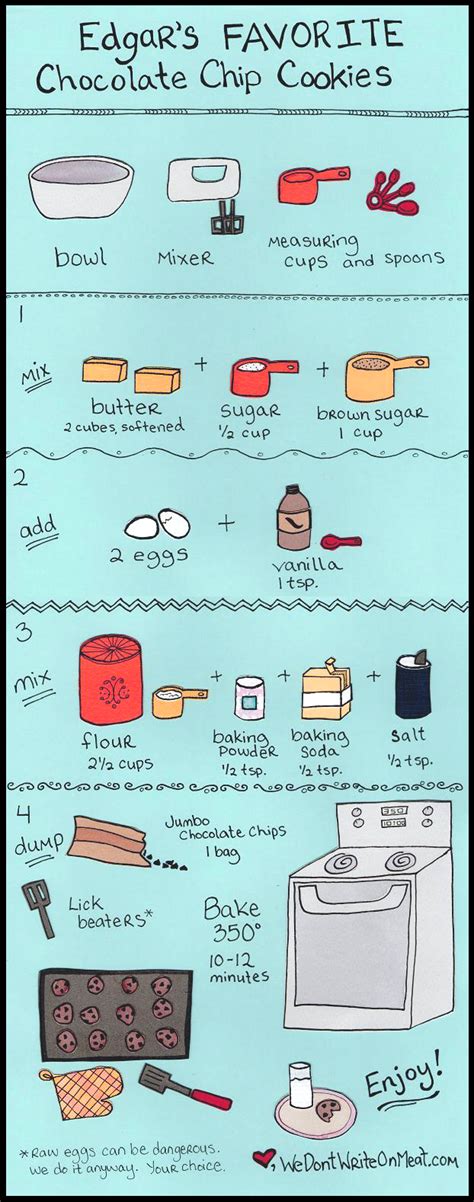 Edgar's FAVORITE
Chocolate Chip Cookies
bowl
Mixer
Measuring
cups and spoons
1
mix
butter
2 cubes, softened
+
sugar
1/2 cup
+
brown sugar
1 cup
2
add
2 eggs
+
vanilla
1 tsp.
3
mix
flour
2 1/2 cups
+
baking
powder
1/2 tsp.
+
baking
soda
1/2 tsp.
+
salt
1/2 tsp.
4
dump
Jumbo
Chocolate Chips
1 bag
Lick
beaters*
Bake
350°
10-12
minutes
350
10:00
Enjoy!
*Raw eggs can be dangerous.
we do it anyway. Your choice.
, WeDontWriteOnMeat.com